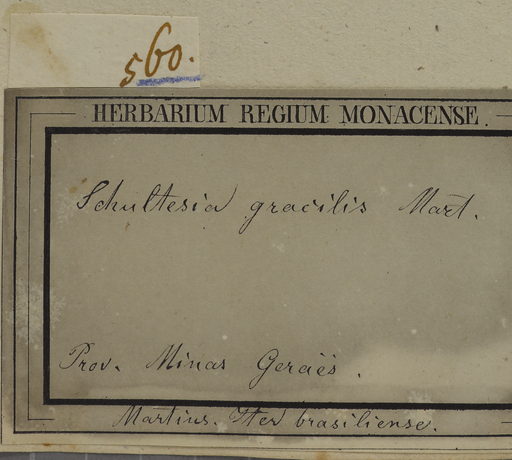 560.
HERBARIUM REGIUM MONACENSE.
Schultesia gracilis Mart.
Prov. Minas Geraës.
Martius. Iter brasiliense.